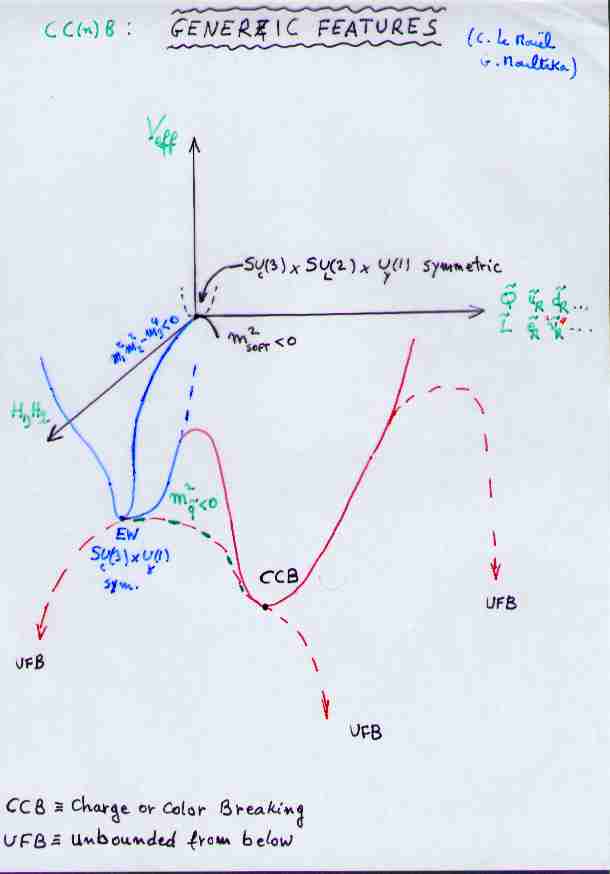 CC(n)B : GENERIC FEATURES
(C. Le Mouël
G. Moultaka)
V_eff
SU_c(3) x SU_L(2) x U_Y(1) symmetric
Q̃ ũ_R d̃_R ...
L̃ ẽ_R ν̃_R ...
m²_SOFT < 0
m₁² m₂² - m₃⁴ < 0
H₁, H₂
m²_q̃ < 0
EW
SU_c(3) x U_γ(1)
sym.
CCB
UFB
UFB
UFB
CCB ≡ Charge or Color Breaking
UFB ≡ Unbounded from below